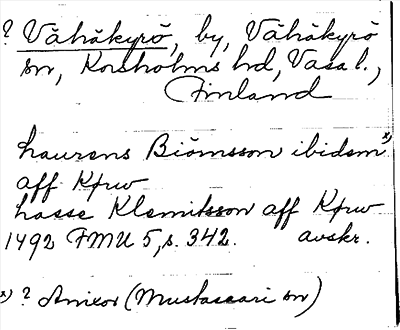 ? Vähäkyrö, by, Vähäkyrö
sn, Korsholms hd, Vasa l.,
Finland
haurens Biörnsson ibidem x)
aff Kprw
hasse Klemitsson aff Kprw
1492 FMU 5, s. 342. avskr.
x) ? Anixor (Mustasaari sn)